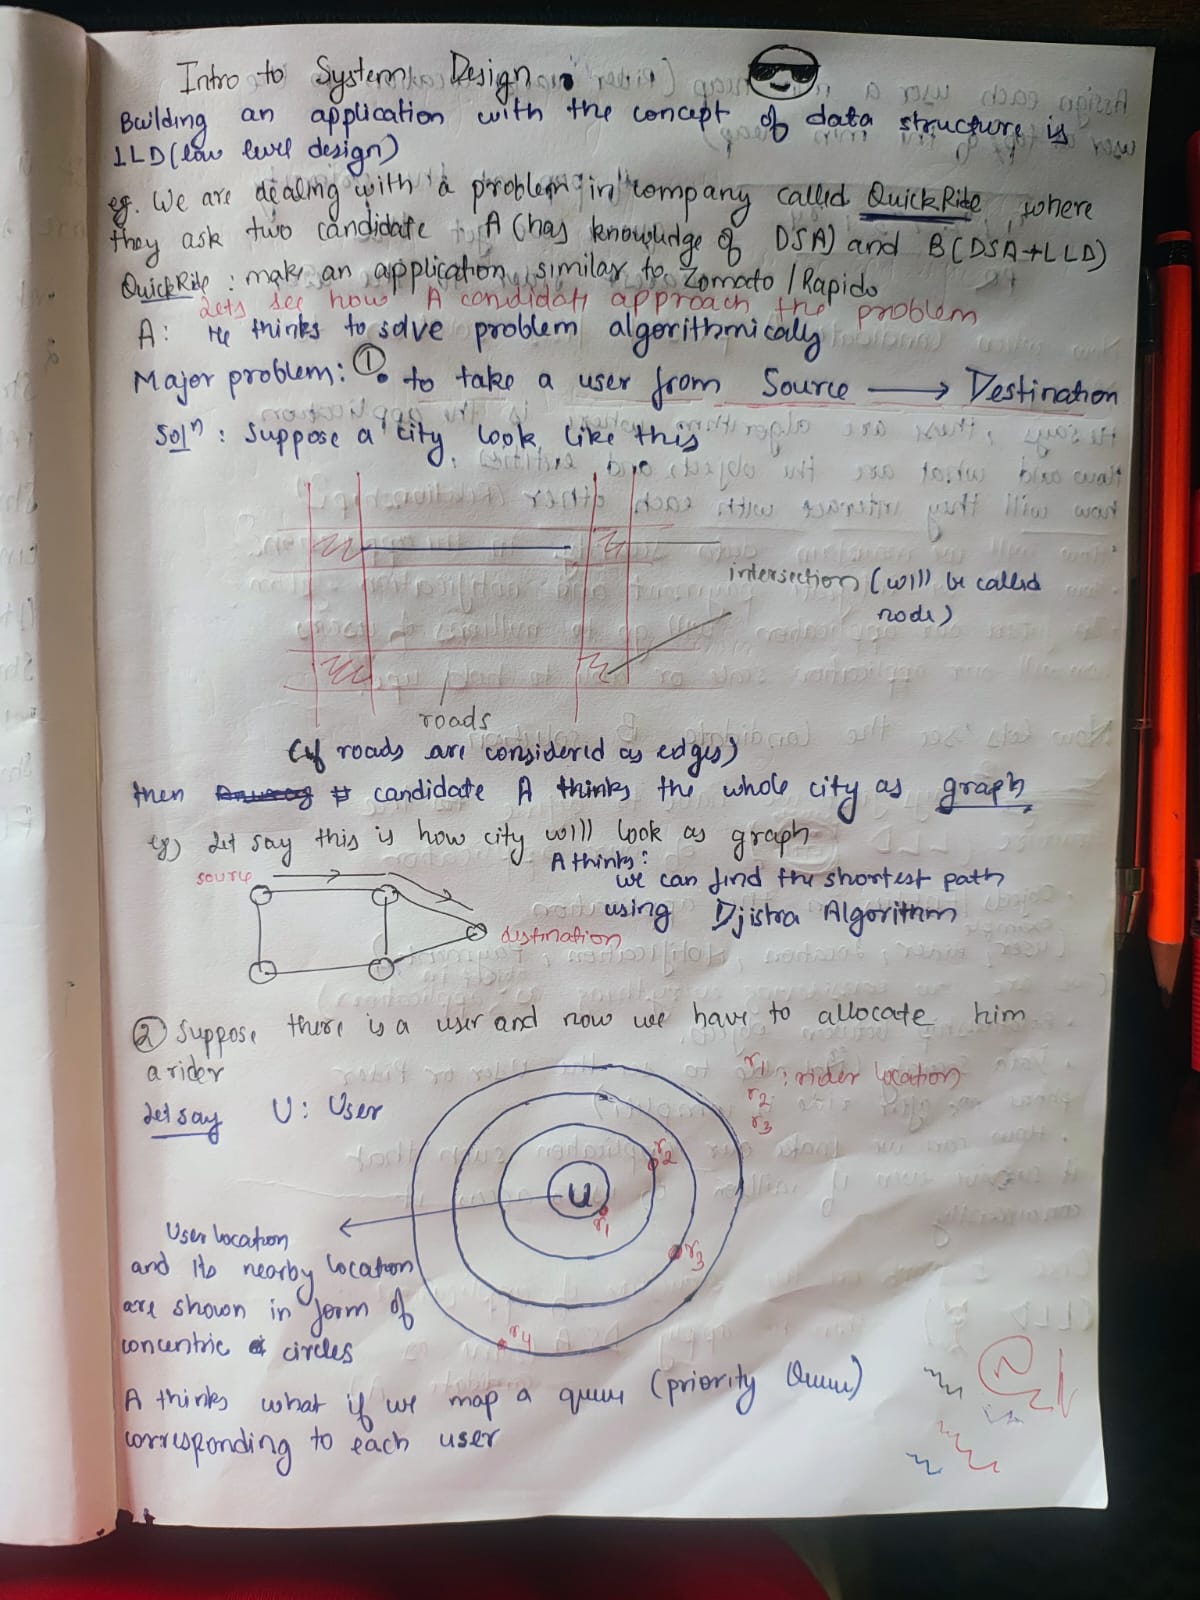 Intro to System Design.
Building an application with the concept of data structure is
LLD (low level design)
eg. We are dealing with a problem in company called QuickRide, where
they ask two candidate A (has knowledge of DSA) and B (DSA+LLD)
QuickRide : make an application similar to Zomato / Rapido
Lets see how A candidate approach the problem
A: He thinks to solve problem algorithmically
Major problem: ① • to take a user from Source ⟶ Destination
Solⁿ : Suppose a city look like this
intersection (will be called
node)
roads
(if roads are considered as edges)
then candidate A thinks the whole city as graph
eg) let say this is how city will look as graph
A thinks:
source
we can find the shortest path
using Djistra Algorithm
destination
② Suppose there is a user and now we have to allocate him
a rider
r1 : rider location
r2
r3
let say U : User
r2
U
r1
r3
r4
User location
and its nearby location
are shown in form of
concentric circles
A thinks what if we map a queue (priority Queue)
corresponding to each user